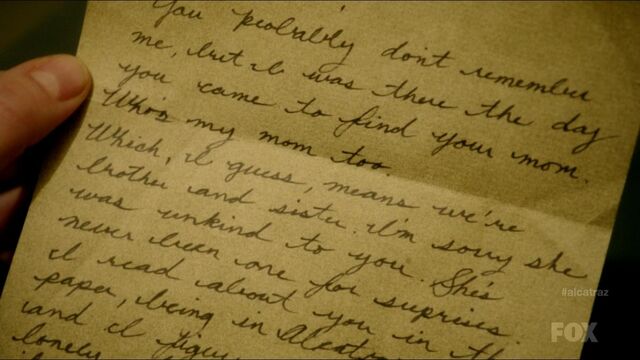 You probably don't remember
me, but I was there the day
you came to find your mom.
Who's my mom too.
Which, I guess, means we're
brother and sister. I'm sorry she
was unkind to you. She's
never been one for suprises.
I read about you in the
paper, being in
and I
lonely
#alcatraz
FOX